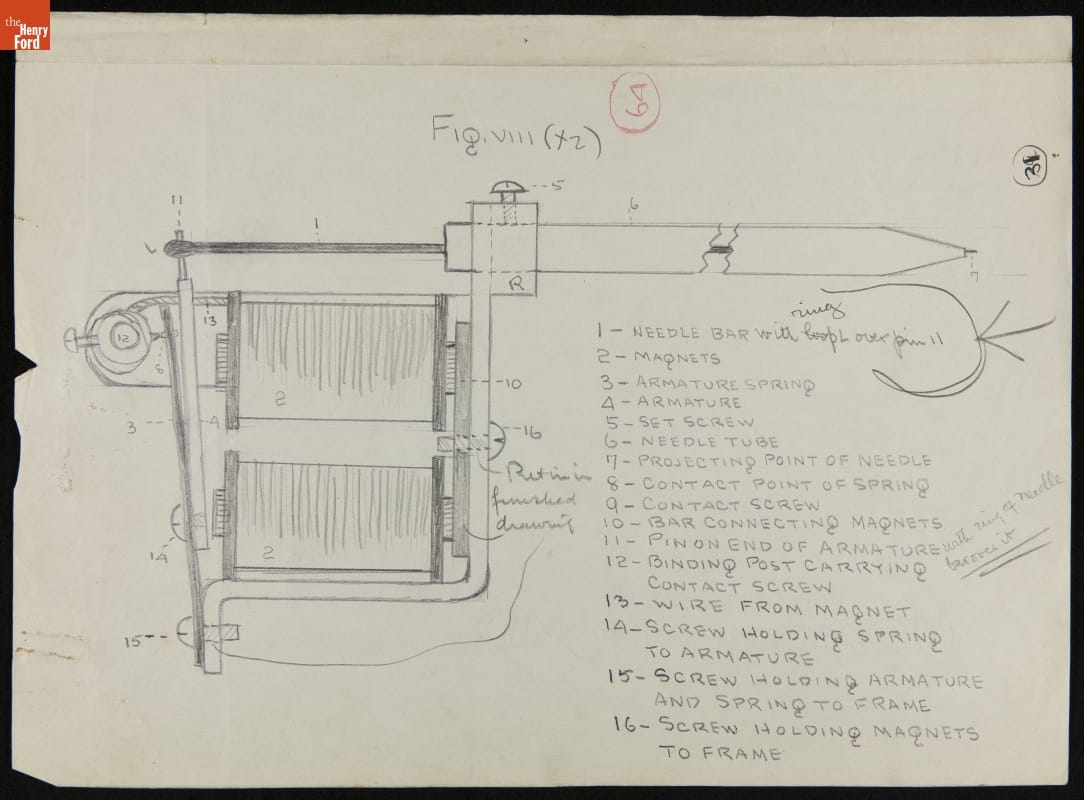 the
Henry
Ford
64
Fig. VIII (X2)
34
11
5
1
6
7
R
12
13
8
2
10
3
4
16
Retain in
finished
drawing
14
2
15
ring
1 - NEEDLE BAR with loop over pin 11
2 - MAGNETS
3 - ARMATURE SPRING
4 - ARMATURE
5 - SET SCREW
6 - NEEDLE TUBE
7 - PROJECTING POINT OF NEEDLE
8 - CONTACT POINT OF SPRING
9 - CONTACT SCREW
10 - BAR CONNECTING MAGNETS
11 - PIN ON END OF ARMATURE with ring of needle
bar over it
12 - BINDING POST CARRYING
CONTACT SCREW
13 - WIRE FROM MAGNET
14 - SCREW HOLDING SPRING
TO ARMATURE
15 - SCREW HOLDING ARMATURE
AND SPRING TO FRAME
16 - SCREW HOLDING MAGNETS
TO FRAME